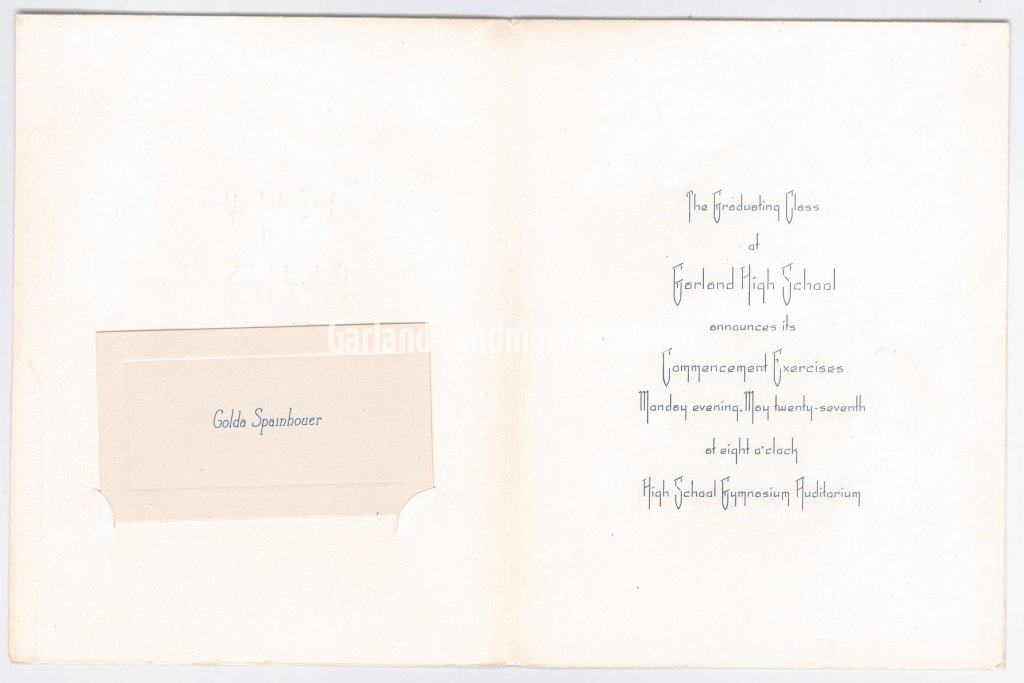 Golda Spainhouer
The Graduating Class
of
Garland High School
announces its
Commencement Exercises
Monday evening, May twenty-seventh
at eight o'clock
High School Gymnasium Auditorium
Garland Landmark